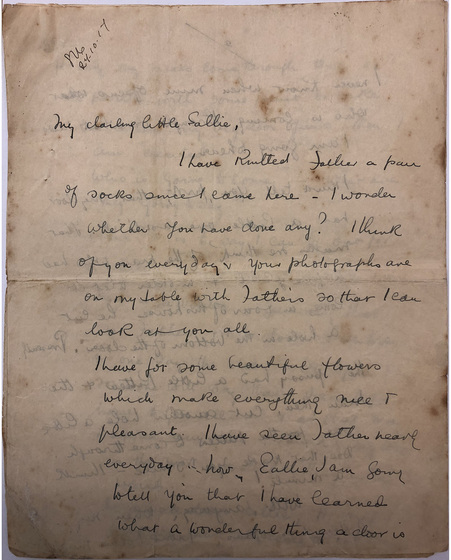 24.10.17
My darling little Eallie,
I have Knitted Father a pair
of socks since I came here - I wonder
whether you have done any? I think
of you everyday & your photographs are
on my table with Fathers so that I can
look at you all.
I have for some beautiful flowers
which make everything nice &
pleasant. I have seen Father nearly
everyday - now, Eallie, I am going
to tell you that I have learned
what a wonderful thing a door is